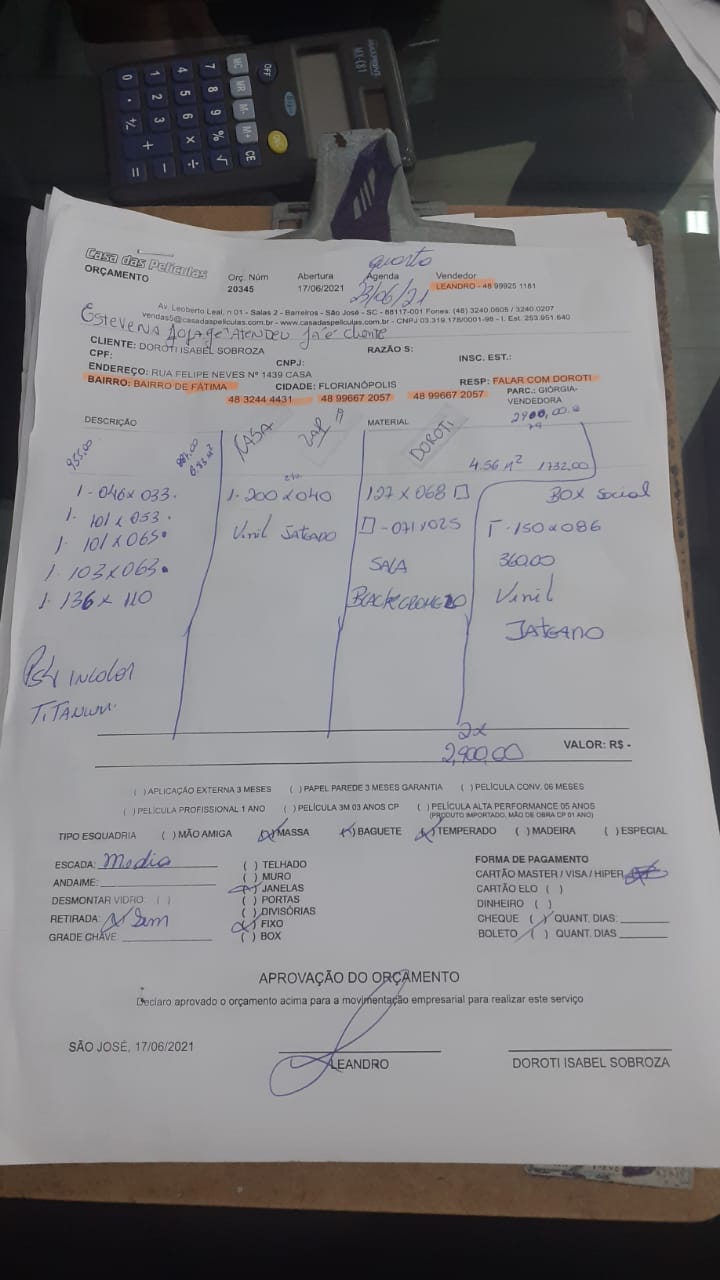 MAXPRINT
MX-C81
OFF
MC MR M- M+ CE
7 8 9 % √
4 5 6 × ÷
1 2 3 + −
0 . +/- =
quarta
Casa das Películas
ORÇAMENTO
Orç. Núm
20345
Abertura
17/06/2021
Agenda
23/06/21
Vendedor
LEANDRO - 48 99925 1181
Av. Leoberto Leal, n 01 - Salas 2 - Barreiros - São José - SC - 88117-001 Fones. (48) 3240.0605 / 3240.0207
vendas5@casadaspeliculas.com.br - www.casadaspeliculas.com.br - CNPJ 03.319.178/0001-98 - I. Est. 253.951.640
Atendeu Já é cliente
CLIENTE: DOROTI ISABEL SOBROZA
RAZÃO S:
CPF:
CNPJ:
INSC. EST.:
ENDEREÇO: RUA FELIPE NEVES Nº 1439 CASA
BAIRRO: BAIRRO DE FÁTIMA
CIDADE: FLORIANÓPOLIS
RESP: FALAR COM DOROTI
48 3244 4431 48 99667 2057 48 99667 2057
PARC.: GIÓRGIA-
VENDEDORA
DESCRIÇÃO
MATERIAL
2900,00
955,00
CASA
DOROTI
4.56 M² 1732.00
1-046x033.
1- 101x053.
1- 101x065.
1- 103x063.
1- 136x110
PS4 INCOLOR
TITANIUM.
1-200x040
Vinil JATEADO
127x068
-071x025
SALA
BOX Social
-150x086
360.00
Vinil
JATEADO
2x
2,900,00
VALOR: R$ -
( ) APLICAÇÃO EXTERNA 3 MESES ( ) PAPEL PAREDE 3 MESES GARANTIA ( ) PELÍCULA CONV. 06 MESES
( ) PELÍCULA PROFISSIONAL 1 ANO ( ) PELÍCULA 3M 03 ANOS CP ( ) PELÍCULA ALTA PERFORMANCE 05 ANOS
(PRODUTO IMPORTADO, MÃO DE OBRA CP 01 ANO)
TIPO ESQUADRIA ( ) MÃO AMIGA (X) MASSA (X) BAGUETE (X) TEMPERADO ( ) MADEIRA ( ) ESPECIAL
ESCADA: Media
ANDAIME:
DESMONTAR VIDRO: ( )
RETIRADA: X Sem
GRADE CHAVE:
( ) TELHADO
( ) MURO
(X) JANELAS
( ) PORTAS
( ) DIVISÓRIAS
(X) FIXO
( ) BOX
FORMA DE PAGAMENTO
CARTÃO MASTER / VISA / HIPER (X)
CARTÃO ELO ( )
DINHEIRO ( )
CHEQUE (/) QUANT. DIAS:
BOLETO (/) QUANT. DIAS
APROVAÇÃO DO ORÇAMENTO
Declaro aprovado o orçamento acima para a movimentação empresarial para realizar este serviço
SÃO JOSÉ, 17/06/2021
LEANDRO
DOROTI ISABEL SOBROZA